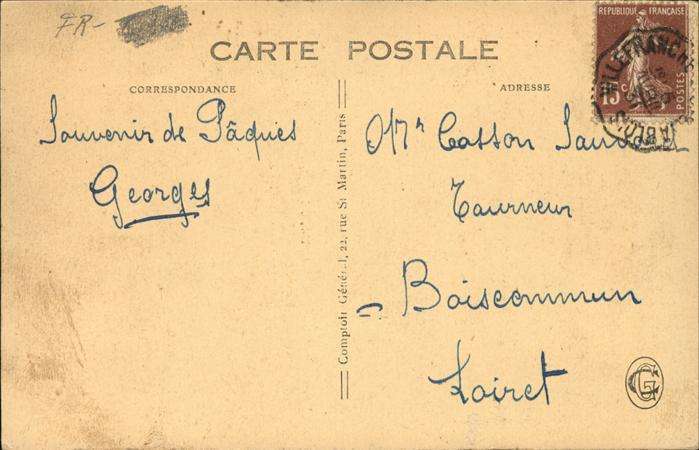 FR-
CARTE POSTALE
CORRESPONDANCE
ADRESSE
RÉPUBLIQUE FRANÇAISE
15c
POSTES
VILLEFRANCHE
Souvenir de Pâques
Georges
Comptoir Général, 22, rue St Martin, Paris
Mr Casson
Tourneur
Boiscommun
Loiret
CG